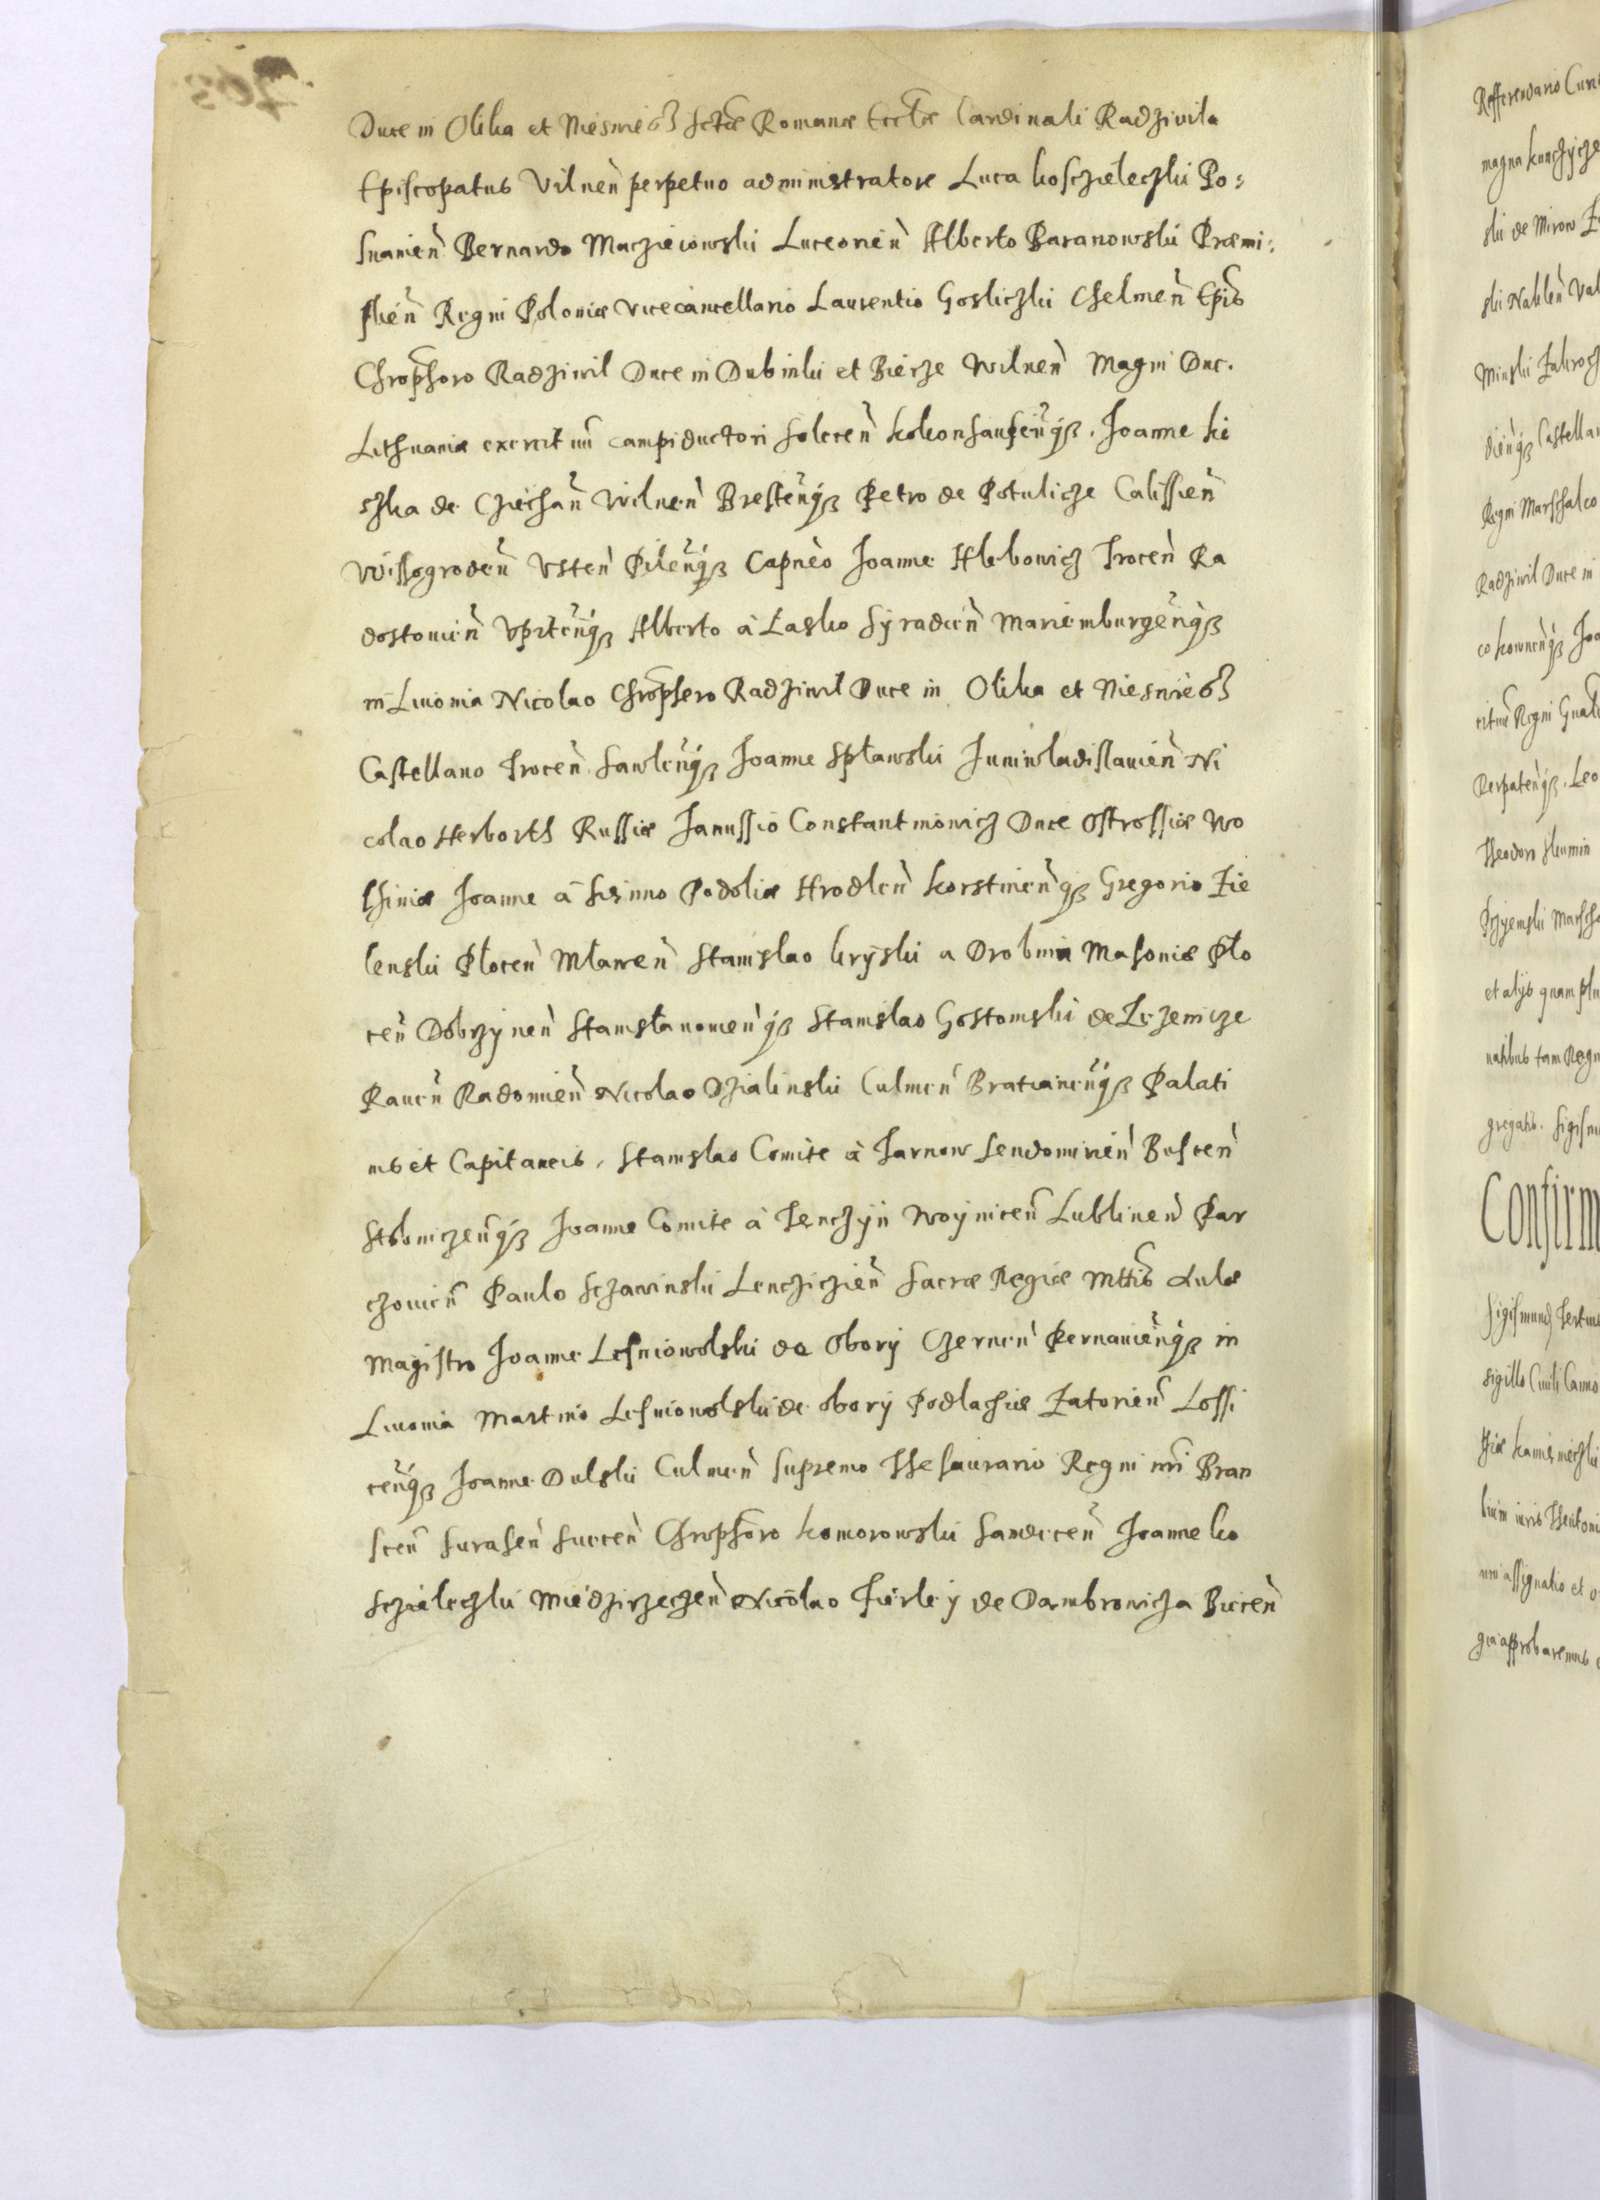 Duce in Olika et Niesvies Sctæ Romanæ Eccłæ Cardinali Radzivila
Episcopatus Vilneñ perpetuo administratore Luca koszczieleczki Po:
snanień Bernardo Maczieiowski Luceorień Alberto Baranowski Præmi:
slień Regni Poloniæ vicecancellario Laurentio Gosliczki Chelmeń Epis
Chrophoro Radziwil Duce in Dubinki et Bierze Wilneń Magni Duc.
Lithuaniæ exercituu campiductori Soleceń kokonhauseńqz. Joanne ki
szka de Cziechań Wilneń Bresteńqz Petro de Potulicze Calissień
Wissogrodeń Vsteń Pileńqz Capneo Joanne Hlebowicz Troceń Ra
dostowień Vpiteńqz Alberto à Lasko Syradień Mariemburgeńqz
in Livonia Nicolao Chrophoro Radziwil Duce in Olika et Niesvies
Castellano Troceń Sawleńqz Joanne Spławski Juniwladislavień Ni
colao Herborth Russiæ Janussio Constantinowicz Duce Ostrossiæ Wo
lhiniæ Joanne à Sieinno Podoliæ Hrodleń korstineńqz Gregorio Zie
lenski Płoceń Mławeń Stanislao kryski a Drobnin Masoviæ Pło
ceń Dobrzyneń Stanisławowieńqz Stanislao Gostomski de Lezenicze
Raveń Radomień Nicolao Dzialinski Culmeń Bratianeńqz Palati
nis et Capitaneis, Stanislao Comite à Tarnow Sendomirień Busceń
Stobniczeńqz Joanne Comite à Tenczyn Woyniceń Lublineń Par
czovień Paulo Sczawinski Lencziczień Sacræ Regiæ Mttis Aulæ
Magistro Joanne Lesniowolski de Obory Czerneń Pernavieńqz in
Livonia Martino Lesniowolski de obory Podlachiæ Zatorień Lossi
ceńqz Joanne Dulski Culmeń Supremo Thesaurario Regni nri Bran
sceń Suraseń Sueceń Chrophoro komorowski Sandeceń Joanne ko
scieleczki Miedzirzeczeń Nicolao Fierley de Dambrowicza Bieceń
Refferendario
magna
ski de Mirow
ski Nakleń
Minski
dieńqz Castellan
Regni Marschalco
Radziwil Duce in
co kowneńqz
Regni
Theodoro Skumin
et alys quam plu
gregatis.
Confirm